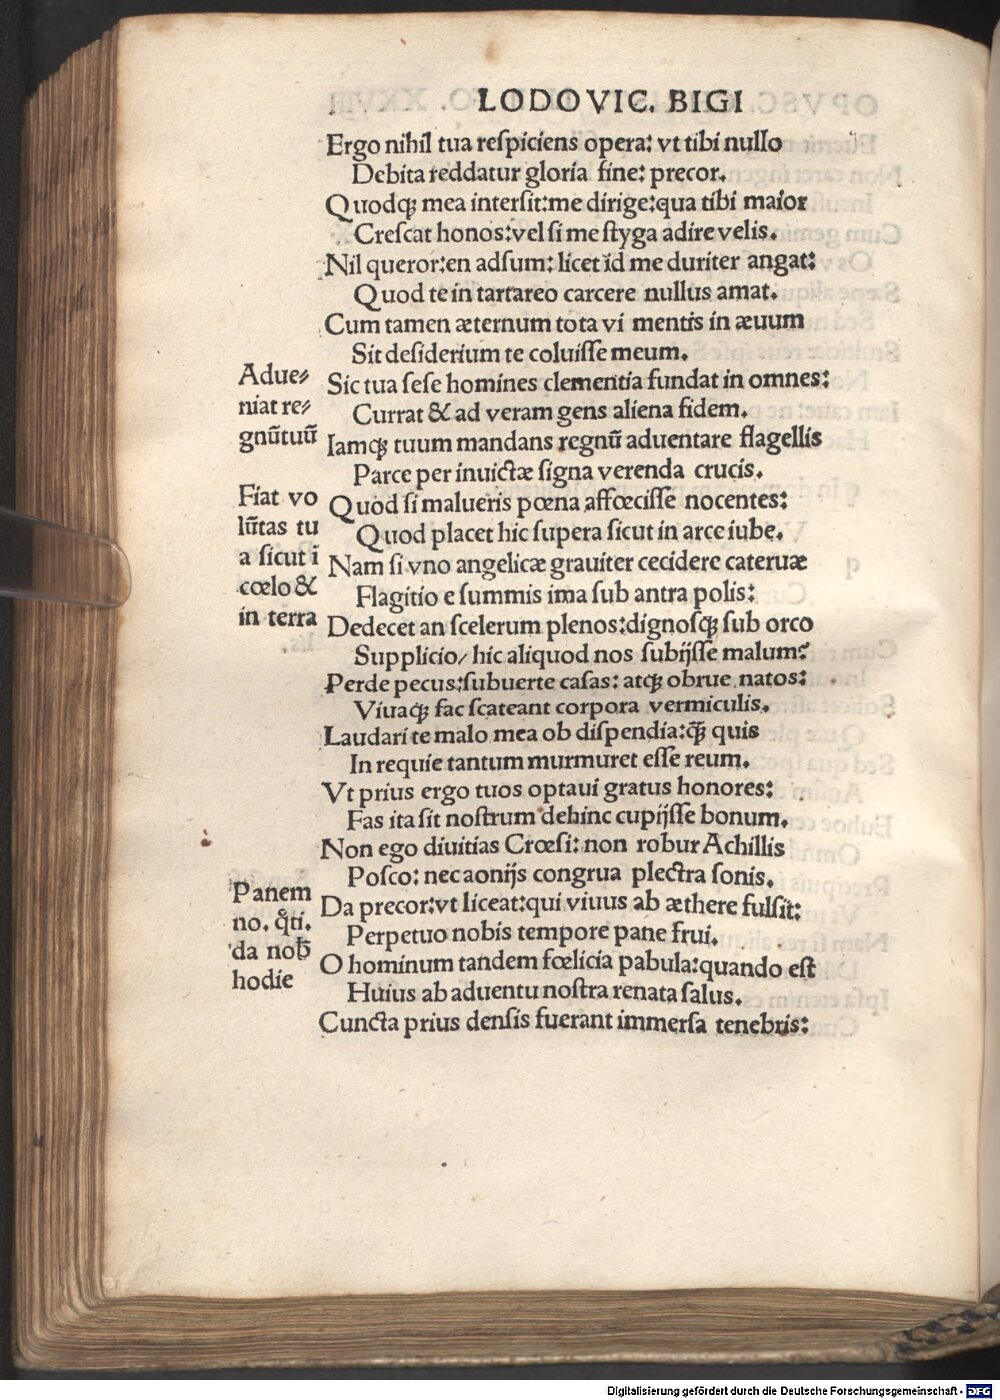 LODOVIC. BIGI
Ergo nihil tua reſpiciens opera: vt tibi nullo
Debita reddatur gloria fine: precor.
Quodqꝫ mea interſit:me dirige:qua tibi maior
Creſcat honos:vel ſi me ſtyga adire velis.
Nil queror:en adſum: licet id me duriter angat:
Quod te in tartareo carcere nullus amat.
Cum tamen æternum tota vi mentis in æuum
Sit deſiderium te coluiſſe meum.
Adue⸗
niat re⸗
gnūtuū
Sic tua ſeſe homines clementia fundat in omnes:
Currat & ad veram gens aliena fidem.
Iamqꝫ tuum mandans regnū aduentare flagellis
Parce per inuictæ ſigna verenda crucis.
Fiat vo
lūtas tu
a ſicut i
cœlo &
in terra
Quod ſi malueris pœna affœciſſe nocentes:
Quod placet hic ſupera ſicut in arce iube.
Nam ſi vno angelicæ grauiter cecidere cateruæ
Flagitio e ſummis ima ſub antra polis:
Dedecet an ſcelerum plenos:dignoſqꝫ ſub orco
Supplicio/ hic aliquod nos ſubijſſe malum?
Perde pecus:ſubuerte caſas: atqꝫ obrue natos:
Viuaqꝫ fac ſcateant corpora vermiculis.
Laudari te malo mea ob diſpendia:qꝫ̄ quis
In requie tantum murmuret eſſe reum.
Vt prius ergo tuos optaui gratus honores:
Fas ita ſit noſtrum dehinc cupijſſe bonum.
Non ego diuitias Crœſi: non robur Achillis
Poſco: nec aonijs congrua plectra ſonis.
Panem
no. qͦti.
da nob̄
hodie
Da precor:vt liceat:qui viuus ab æthere fulſit:
Perpetuo nobis tempore pane frui.
O hominum tandem fœlicia pabula:quando eſt
Huius ab aduentu noſtra renata ſalus.
Cuncta prius denſis fuerant immerſa tenebris:
Digitalisierung gefördert durch die Deutsche Forschungsgemeinschaft - DFG